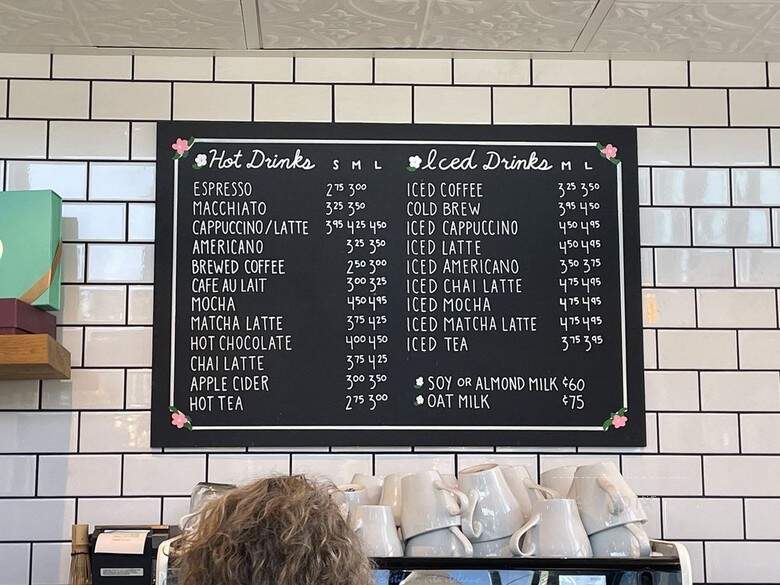 Hot Drinks S M L
ESPRESSO 275 300
MACCHIATO 325 350
CAPPUCCINO/LATTE 395 425 450
AMERICANO 325 350
BREWED COFFEE 250 300
CAFE AU LAIT 300 325
MOCHA 450 495
MATCHA LATTE 375 425
HOT CHOCOLATE 400 450
CHAI LATTE 375 425
APPLE CIDER 300 350
HOT TEA 275 300
Iced Drinks M L
ICED COFFEE 325 350
COLD BREW 395 450
ICED CAPPUCCINO 450 495
ICED LATTE 450 495
ICED AMERICANO 350 375
ICED CHAI LATTE 475 495
ICED MOCHA 475 495
ICED MATCHA LATTE 475 495
ICED TEA 375 395
SOY OR ALMOND MILK ¢60
OAT MILK ¢75